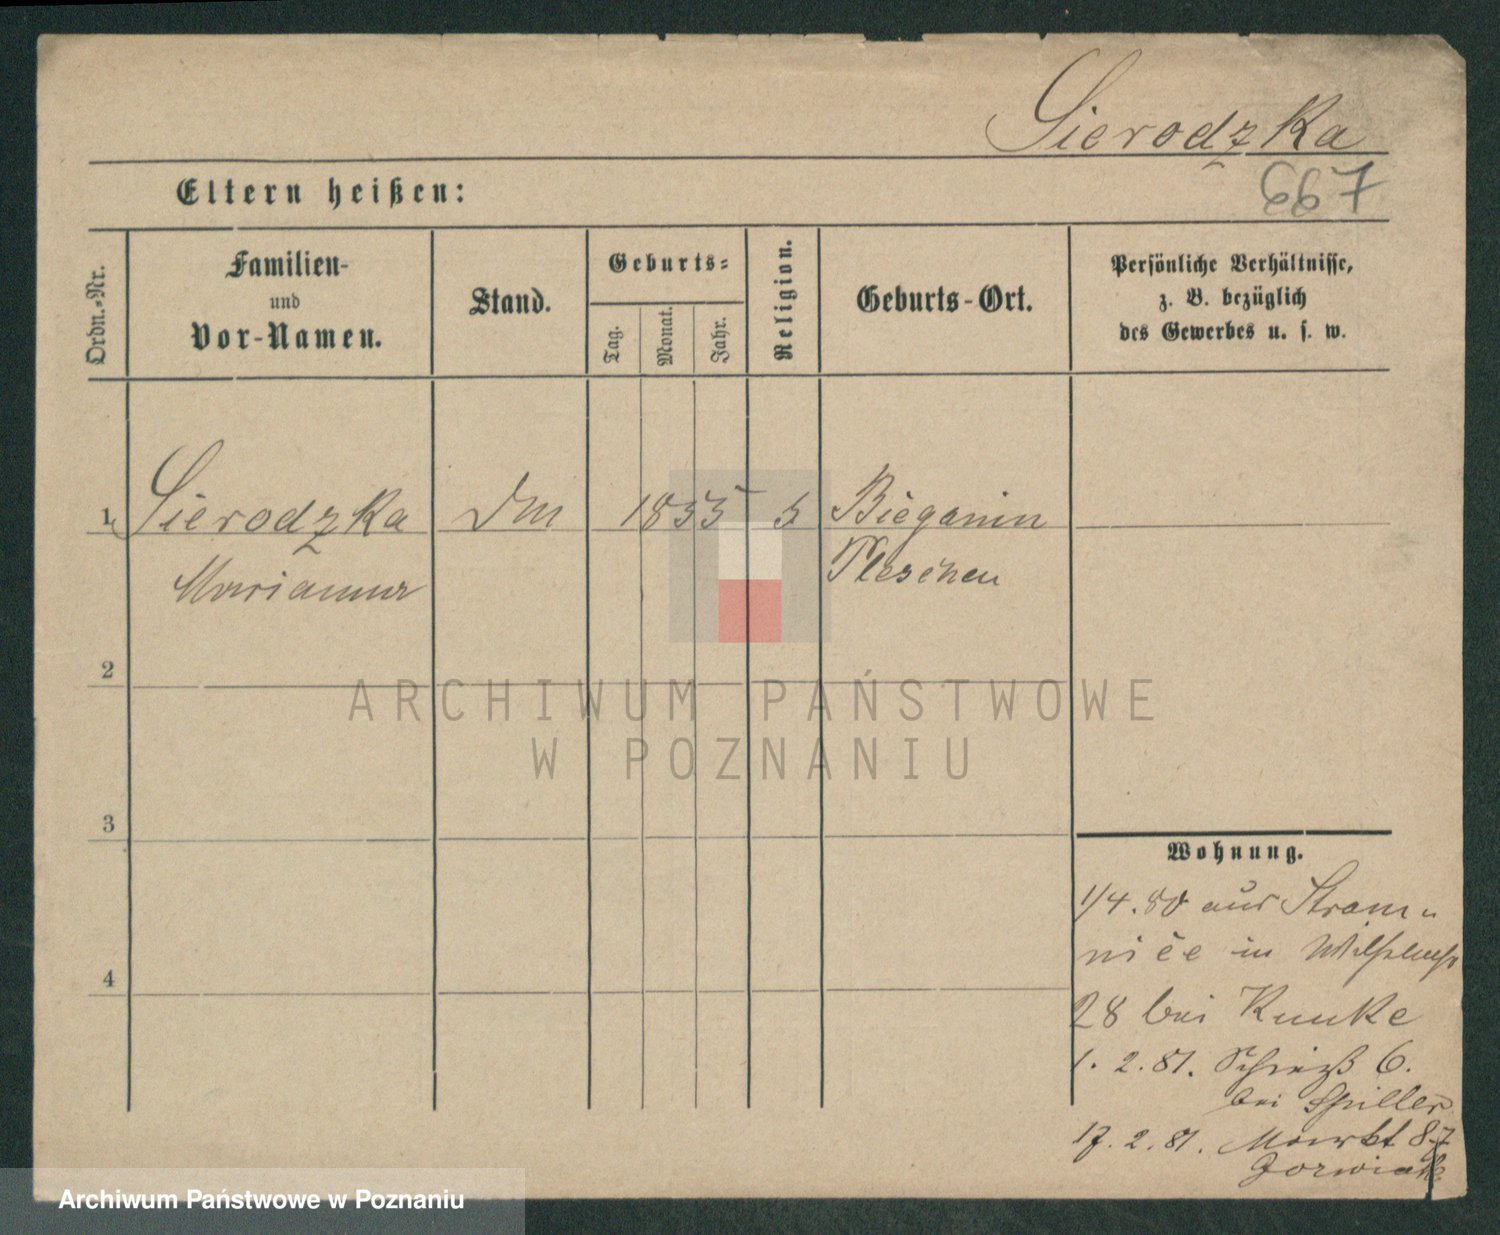 Sierodzka
667
Eltern heißen:
Ordn.-Nr.
Familien-
und
Vor-Namen.
Stand.
Geburts-
Tag.
Monat.
Jahr.
Religion.
Geburts-Ort.
Persönliche Verhältnisse,
z. B. bezüglich
des Gewerbes u. s. w.
1 Sierodzka 1855 Bieganin
Marianna Pleschen
2
ARCHIWUM PAŃSTWOWE
W POZNANIU
3
4
Wohnung.
1/4. 80 aus
in
28 bei Kunke
1. 2. 81. 6.
bei Spiller
17. 2. 81. Markt 87
Archiwum Państwowe w Poznaniu